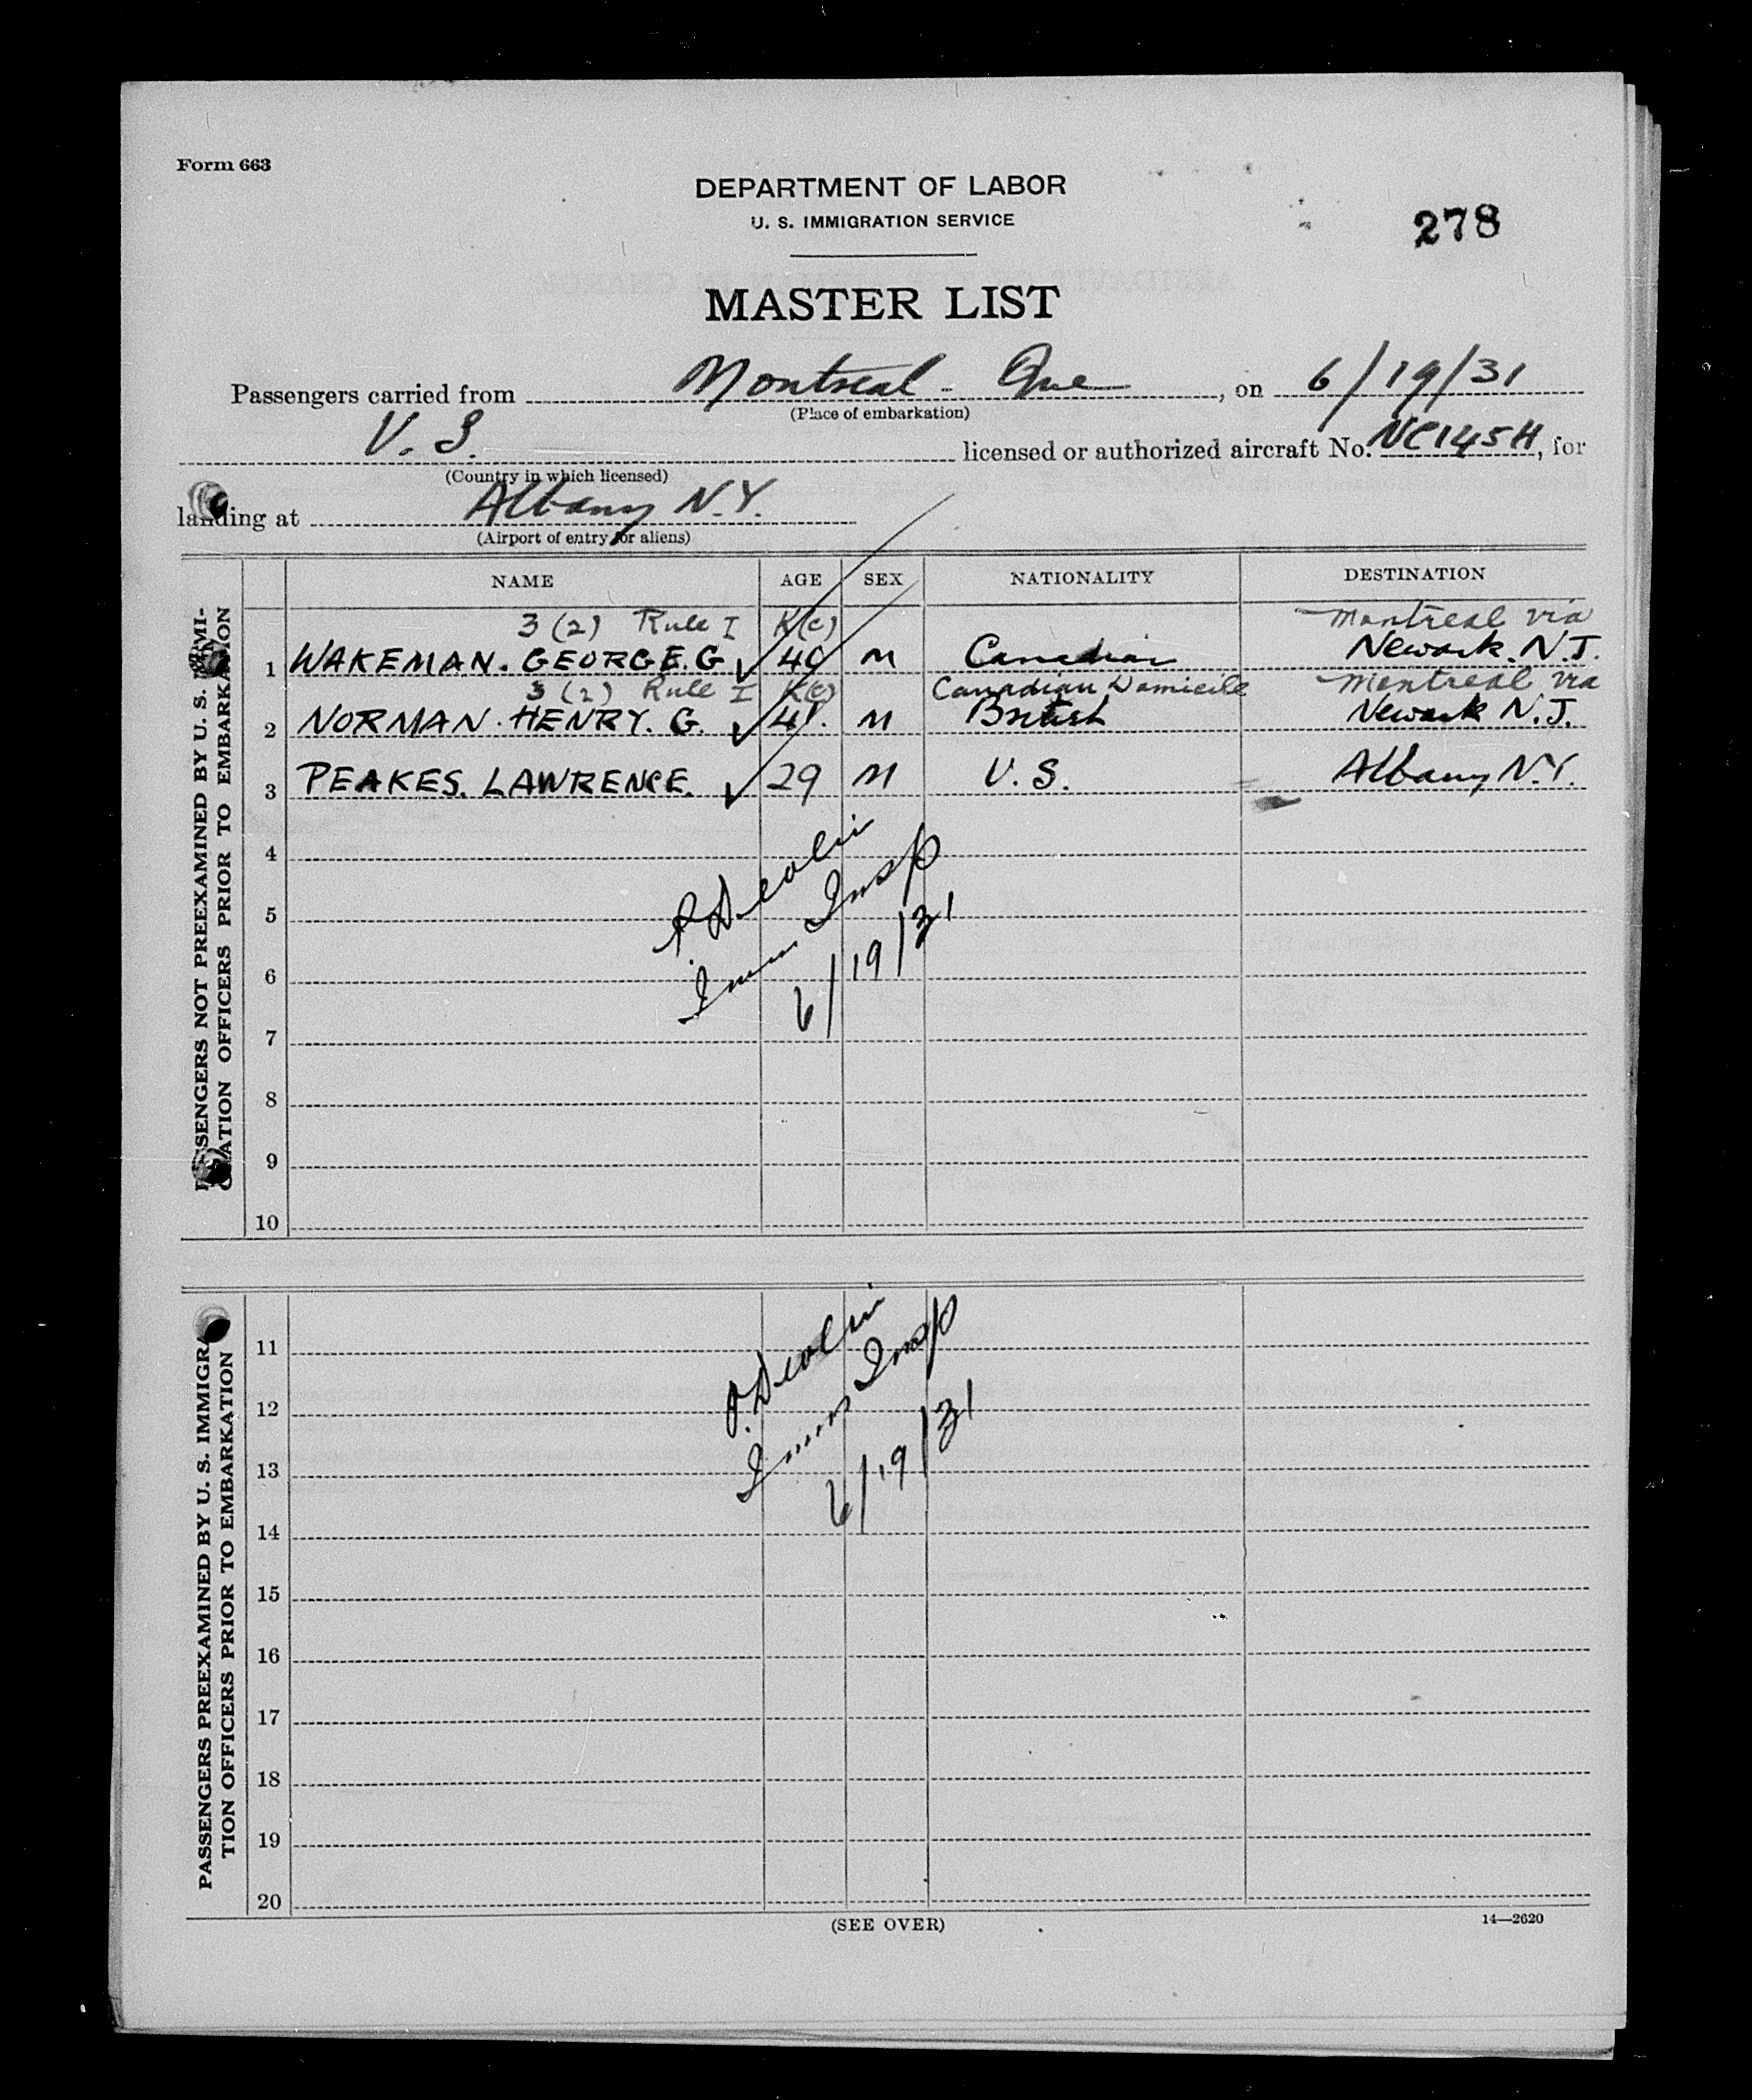 Form 663
DEPARTMENT OF LABOR
U. S. IMMIGRATION SERVICE
278
MASTER LIST
Passengers carried from Montreal - Que, on 6/19/31
(Place of embarkation)
U. S. licensed or authorized aircraft No. NC145H, for
(Country in which licensed)
landing at Albany N.Y.
(Airport of entry for aliens)
NAME AGE SEX NATIONALITY DESTINATION
PASSENGERS NOT PREEXAMINED BY U. S. IMMI-
GRATION OFFICERS PRIOR TO EMBARKATION
3 (2) Rule I K(c) Montreal via
1 WAKEMAN. GEORGE. G ✓ 40 M Canadian Newark. N.J.
3 (2) Rule I K(c) Canadian Domicile Montreal via
2 NORMAN. HENRY. G. ✓ 41. M British Newark N.J.
3 PEAKES. LAWRENCE. ✓ 29 M U.S. Albany N.Y.
4
5
6
7
8
9
10
Devlin
Imm Insp
6/19/31
PASSENGERS PREEXAMINED BY U. S. IMMIGRA-
TION OFFICERS PRIOR TO EMBARKATION
11
12
13
14
15
16
17
18
19
20
Devlin
Imm Insp
6/19/31
(SEE OVER)
14—2620